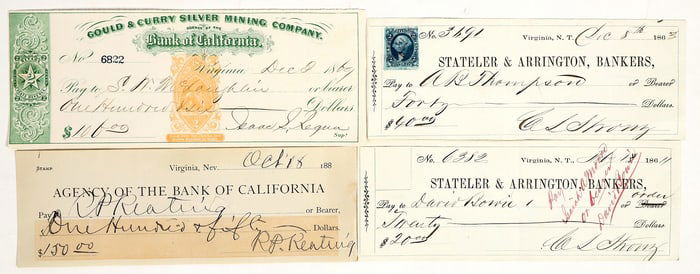 GOULD & CURRY SILVER MINING COMPANY.
AGENCY OF THE
Bank of California.
No 6822
Virginia Dec 2 1869
Pay to or bearer
One Hundred six Dollars
$106.00
Isaac L. Requa
Supt
No. 3691 Virginia, N. T. Dec 8th 186
STATELER & ARRINGTON, BANKERS,
Pay to A B Thompson or Bearer
Forty Dollars.
$40.00 C L Strong
STAMP Virginia, Nev. Oct 18 188
AGENCY OF THE BANK OF CALIFORNIA
Pay R P Keating or Bearer,
One Hundred & fifty Dollars.
$150.00 R.P. Keating
No. 6382 Virginia, N. T., 1861
STATELER & ARRINGTON, BANKERS,
order
Pay to David Bowie or Bearer
Twenty Dollars.
$20.00 C L Strong
Pay
or